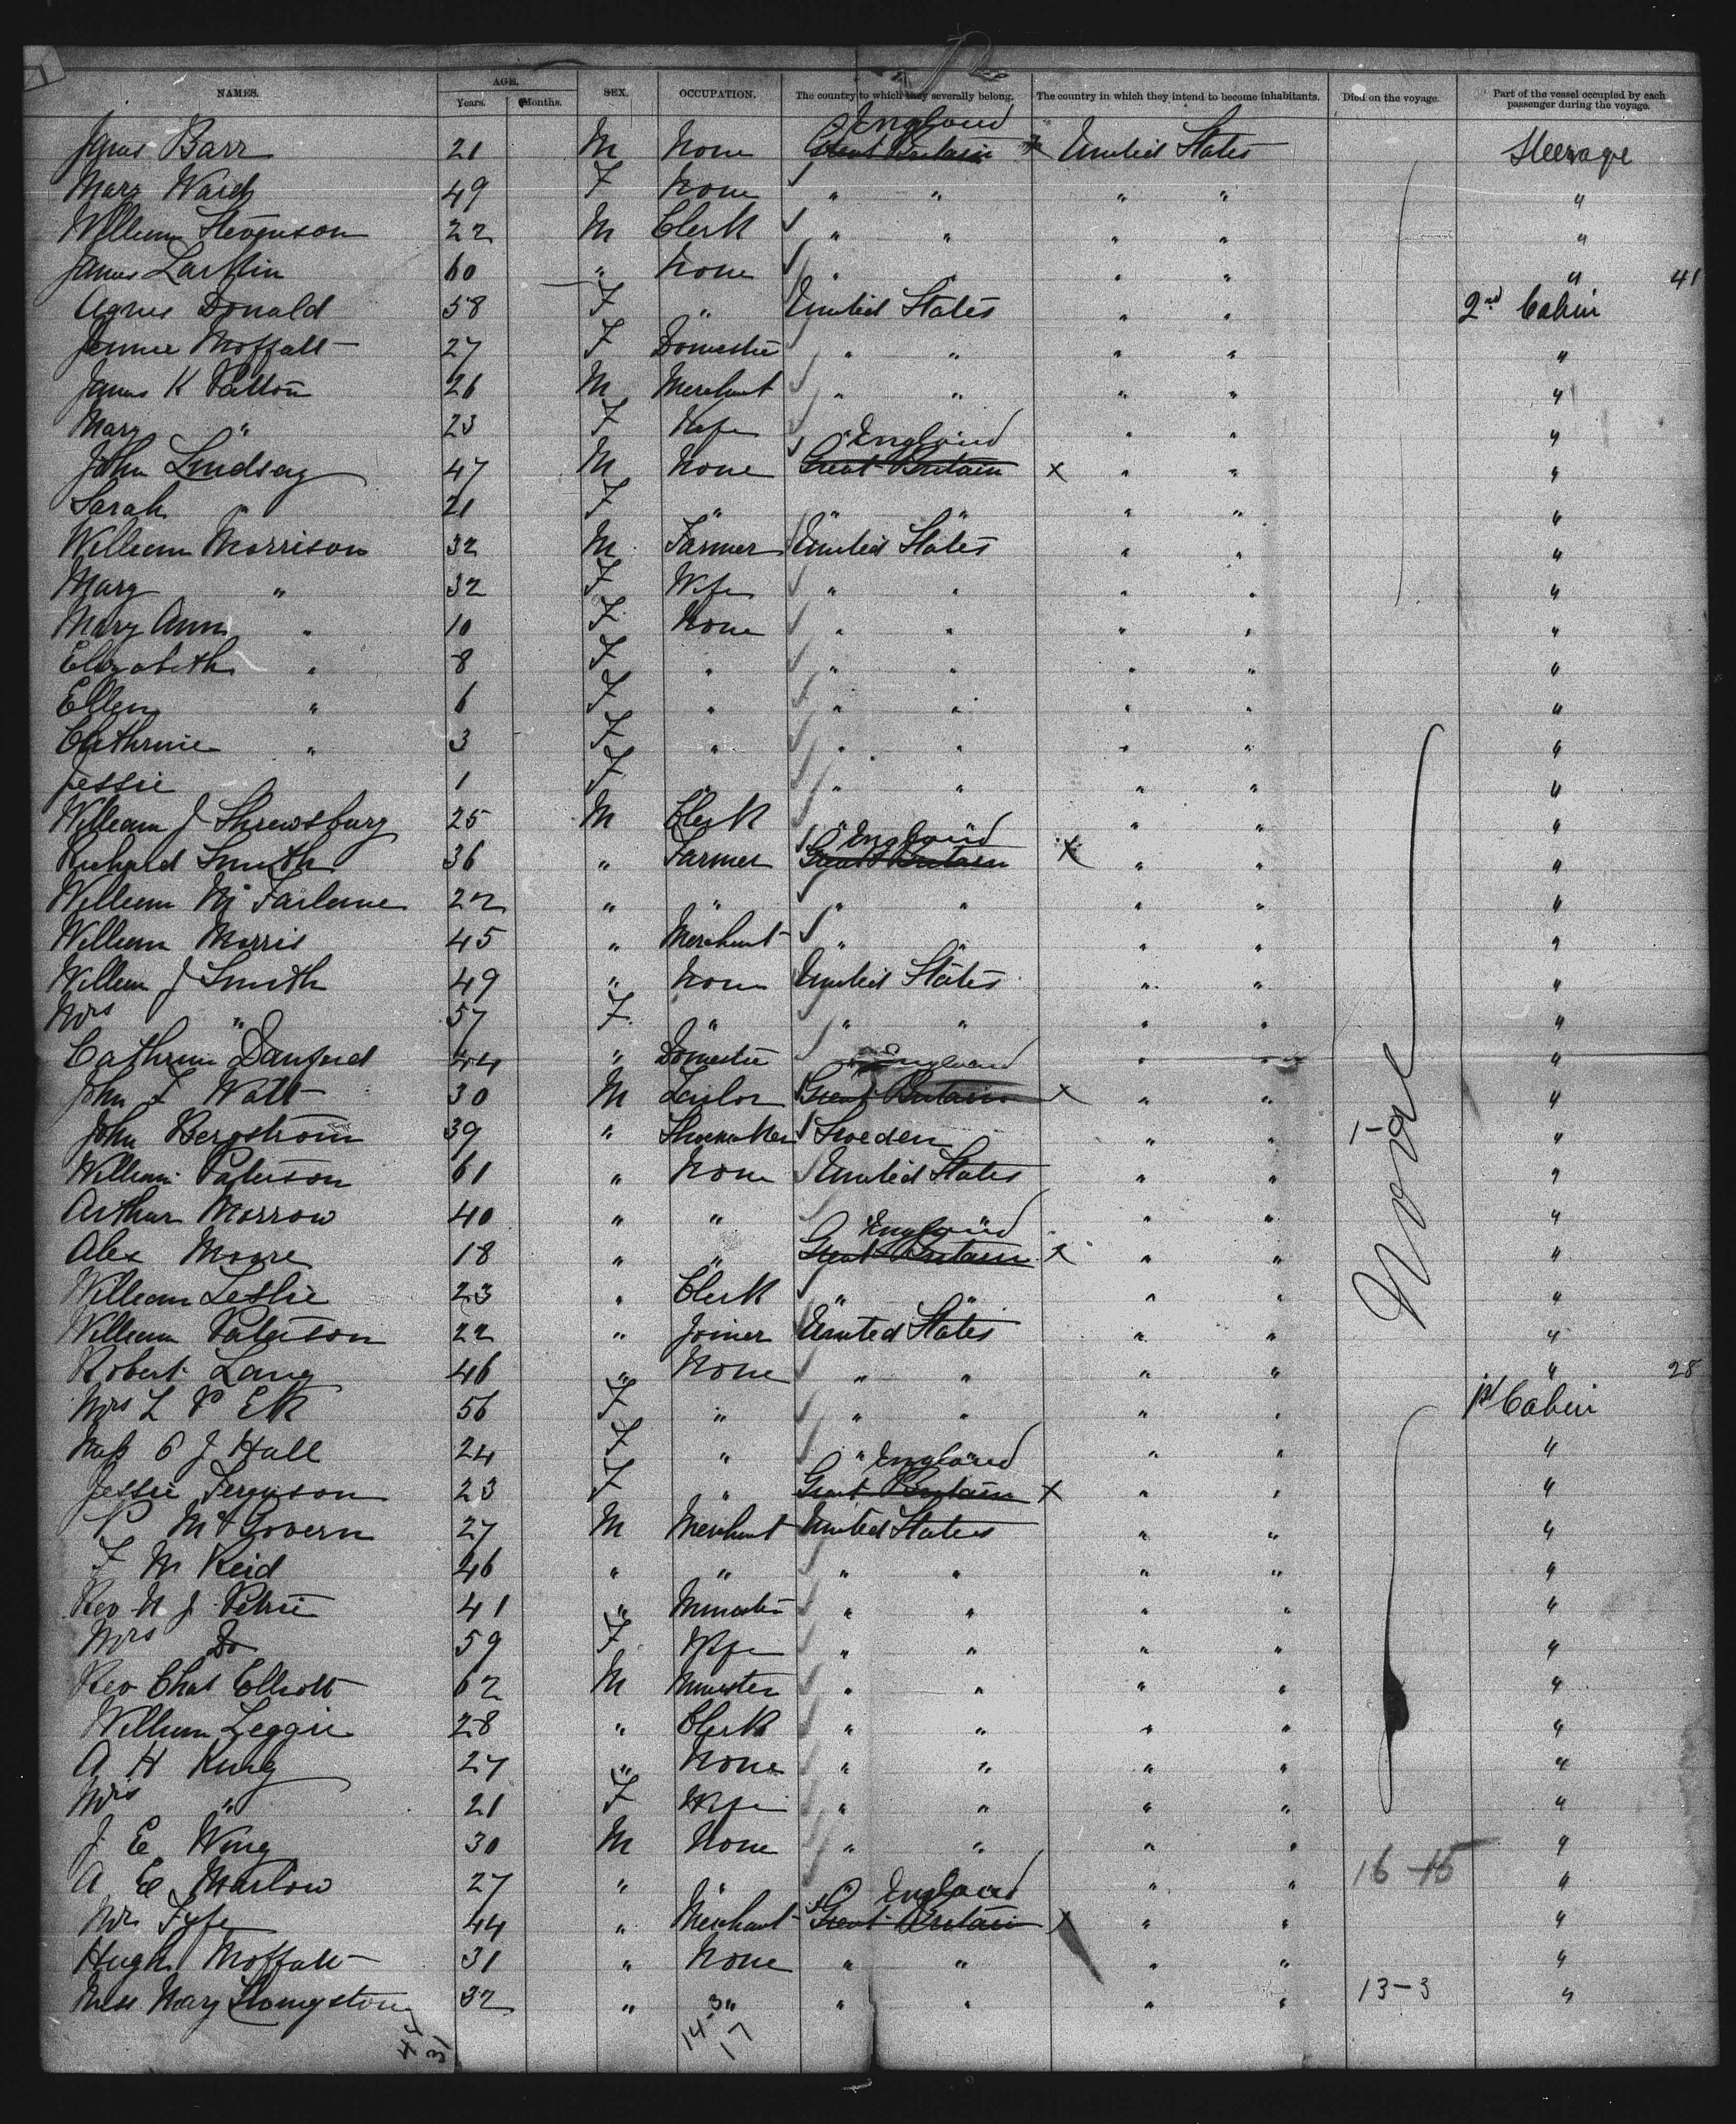 NAMES. AGE. Years. Months. SEX. OCCUPATION. The country to which they severally belong. The country in which they intend to become inhabitants. Died on the voyage. Part of the vessel occupied by each passenger during the voyage.
England
Barr 21 M None Great Britain x United States Steerage
Mary 49 F None " " " " "
William Stevenson 22 M Clerk " " " " "
James Larkin 60 " None " " " " " 41
Agnes Donald 58 F " United States " " 2nd Cabin
Jennie Moffatt 27 F Domestic " " " " "
James K Patton 26 M Merchant " " " " "
Mary " 23 F Wife " " " " "
England
John Lindsay 47 M None Great Britain x " " "
Sarah " 21 F " " " " " "
William Morrison 32 M Farmer United States " " "
Mary " 32 F Wife " " " " "
Mary Ann " 10 F None " " " " "
Elizabeth " 8 F " " " " " "
Ellen " 6 F " " " " " "
Cathrine " 3 F " " " " " "
Jessie 1 F " " " " " "
William J Shrewsbury 25 M Clerk " " " " "
England
Richard Smith 36 " Farmer Great Britain x " " "
William McFarlane 22 " " " " " " "
William Morris 45 " Merchant " " " " "
William J Smith 49 " None United States " " "
Mrs " 57 F " " " " " "
Cathrine 44 " Domestic " " " "
England
John F Watt 30 M Tailor Great Britain x " " "
John Bergstrom 39 " Shoemaker Sweden " " 1- "
William Paterson 61 " None United States " " "
Arthur Morrow 40 " " " " " " "
England
Alex Moore 18 " " Great Britain x " " "
William Leslie 23 " Clerk " " " " "
William Paterson 22 " Joiner United States " " "
Robert Lang 46 " None " " " " " 28
None
Mrs L P Ek 56 F " " " " " 1st Cabin
Miss J Hall 24 F " " " " " "
England
Jessie Ferguson 23 F " Great Britain x " " "
McGovern 27 M Merchant United States " " "
F M Reid 46 " " " " " " "
Rev J Petrie 41 " Minister " " " " "
Mrs Do 59 F Wife " " " " "
Rev Chas Elliott 62 M Minister " " " " "
William Leggie 28 " Clerk " " " " "
A H King 27 " None " " " " "
Mrs " 21 F Wife " " " " "
J E Wing 30 M None " " " " "
A E Marlow 27 " " " " " " 16-15 "
England
Mr Fyfe 44 " Merchant Great Britain x " " "
Hugh Moffatt 31 " None " " " " "
Miss Mary Livingstone 32 " " " " " " 13-3 "
14-3
17